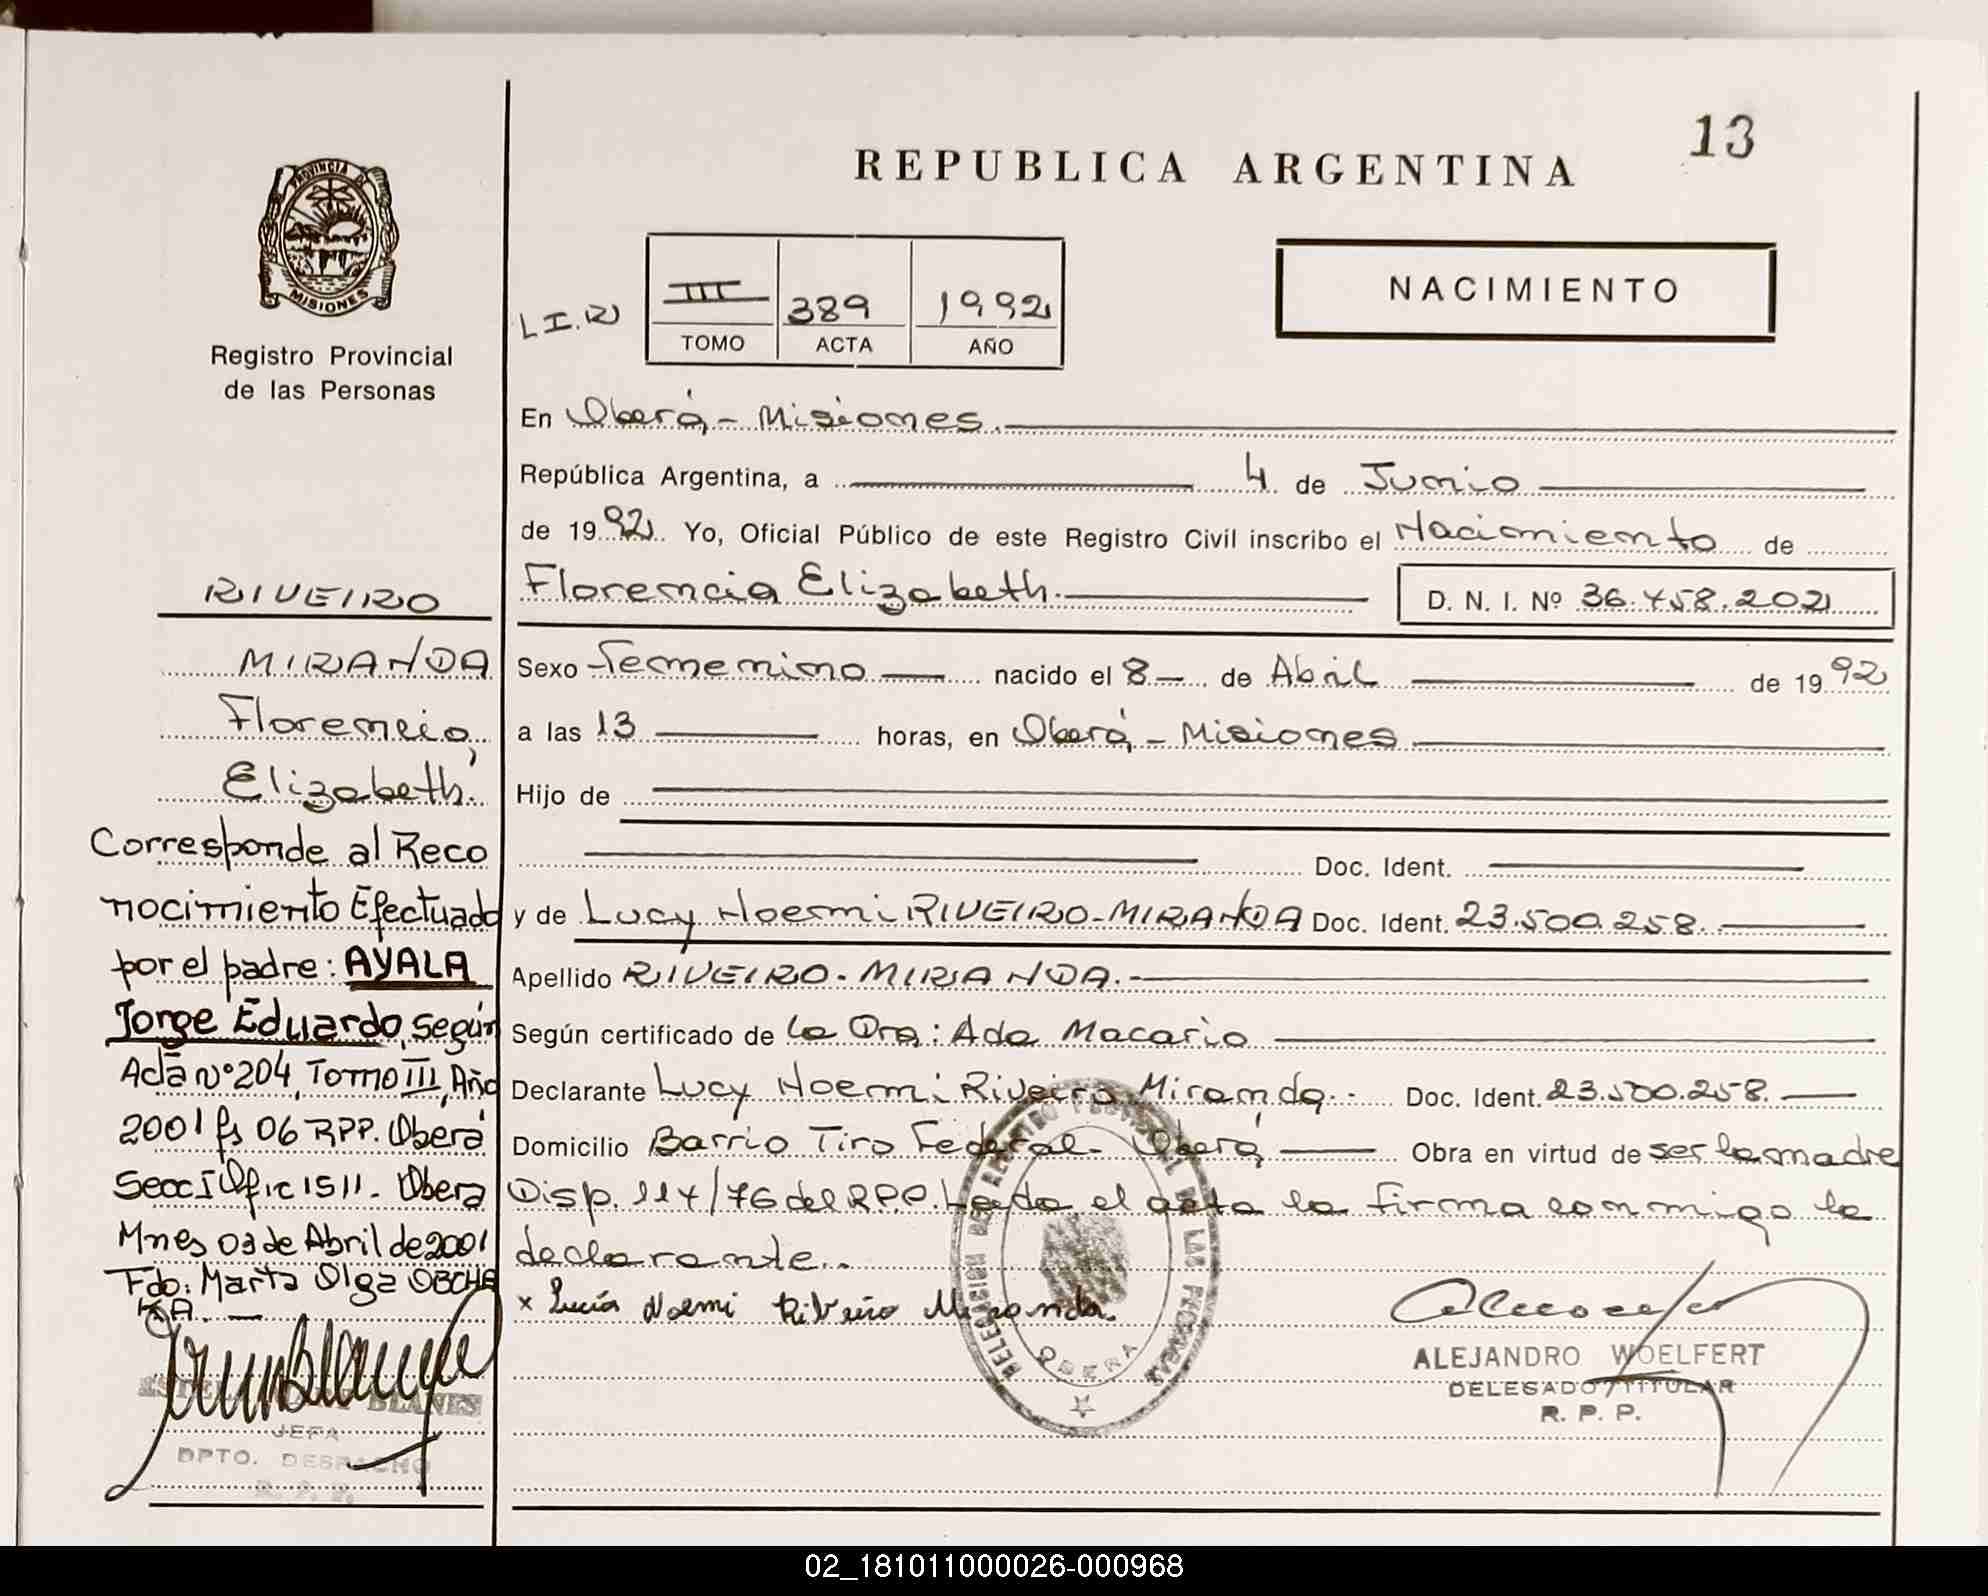 13
REPUBLICA ARGENTINA
PROVINCIA DE
MISIONES
Registro Provincial
de las Personas
NACIMIENTO
L.I.R
III 389 1992
TOMO ACTA AÑO
En Oberá,- Misiones.
República Argentina, a 4 de Junio
de 1992 Yo, Oficial Público de este Registro Civil inscribo el Nacimiento de
Florencia Elizabeth. D. N. I. Nº 36.458.202
Sexo Femenino nacido el 8 de Abril de 1992
a las 13 horas, en Oberá,- Misiones
Hijo de
Doc. Ident.
y de Lucy Noemi RIVEIRO-MIRANDA Doc. Ident. 23.500.258.
Apellido RIVEIRO-MIRANDA.-
Según certificado de la Dra: Ada Macario
Declarante Lucy Noemi Riveiro Miranda.- Doc. Ident. 23.500.258.
Domicilio Barrio Tiro Federal- Oberá, Obra en virtud de ser la madre
Disp. 114/76 del R.P.P. Leída el acta la firma conmigo la
declarante..
x Lucía Noemi Riveiro Miranda.
OBERA
ALEJANDRO WOELFERT
DELEGADO TITULAR
R. P. P.
RIVEIRO
MIRANDA
Florencia,
Elizabeth.
Corresponde al Reco
nocimiento Efectuado
por el padre: AYALA
Jorge Eduardo, según
Acta nº 204, Tomo III, Año
2001 fs 06 RPP. Oberá
Secc I Ofic 1511.- Oberá
Mnes 03 de Abril de 2001
Fdo: Marta Olga OBCHA
KA.
BLANES
JEFA
DPTO. DESPACHO
R. P. P.
02_181011000026-000968